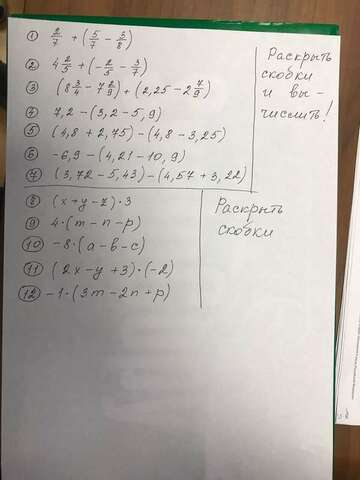 ① 2/7 + (5/7 - 3/8)
② 4 2/5 + (- 2/5 - 3/7)
③ (8 3/4 - 7 2/9) + (2,25 - 2 7/9)
④ 7,2 - (3,2 - 5,9)
⑤ (4,8 + 2,75) - (4,8 - 3,25)
⑥ -6,9 - (4,21 - 10,9)
⑦ (3,72 - 5,43) - (4,57 + 3,22)
Раскрыть
скобки
и вы-
числить!
⑧ (x + y - z) · 3
⑨ 4 · (m - n - p)
⑩ -8 · (a - b - c)
⑪ (2x - y + 3) · (-2)
⑫ -1 · (3m - 2n + p)
Раскрыть
скобки